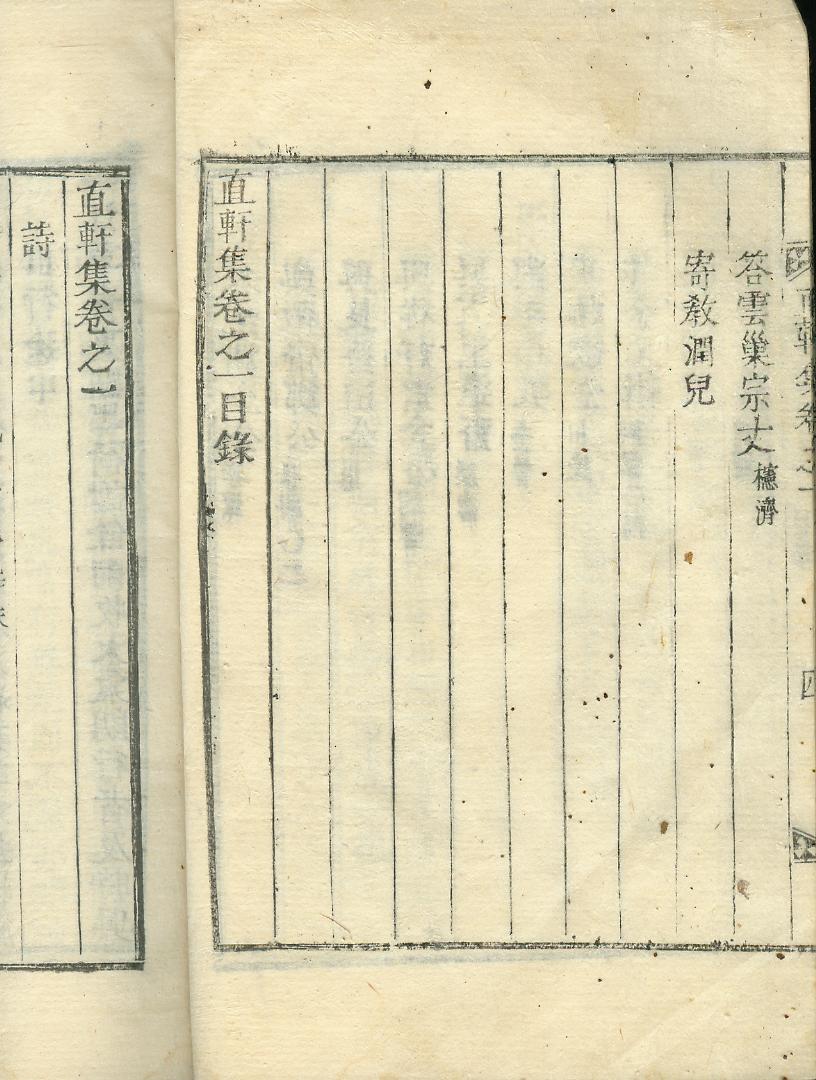 直軒集卷之一
四
答雲巢宗丈 櫶濟
寄敎潤兒
直軒集卷之一目錄
直軒集卷之一
詩